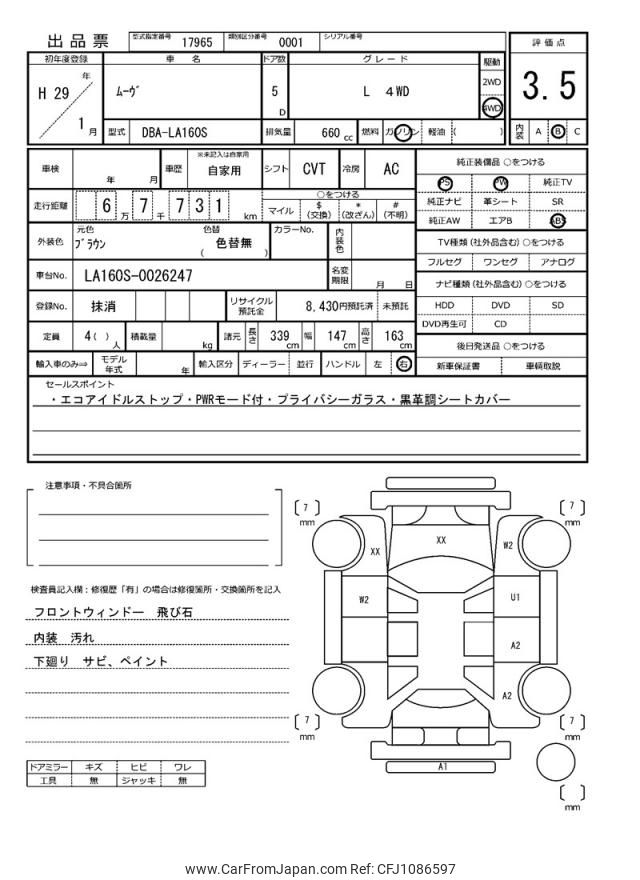 出品票 型式指定番号 17965 類別区分番号 0001 シリアル番号
評価点
3.5
内装 A B C
初年度登録 車名 ドア数 グレード 駆動
H 29 年 1 月
ムーヴ 5 D L 4WD
2WD
4WD
型式 DBA-LA160S 排気量 660 cc 燃料 ガソリン 軽油 ( )
車検 年 月 車歴 ※未記入は自家用 自家用 シフト CVT 冷房 AC
走行距離 6万 7千 7 3 1 km
○をつける
マイル $(交換) *(改ざん) #(不明)
外装色 元色 ブラウン 色替 ( 色替無 ) カラーNo. 内装色
車台No. LA160S-0026247 名変期限 月 日
登録No. 抹消 リサイクル預託金 8,430円預託済 未預託
定員 4( )人 積載量 kg 諸元 長さ 339 cm 幅 147 cm 高さ 163 cm
輸入車のみ⇒ モデル年式 年 輸入区分 ディーラー 並行 ハンドル 左 右
純正装備品 ○をつける
PS PW 純正TV
純正ナビ 革シート SR
純正AW エアB ABS
TV種類(社外品含む)○をつける
フルセグ ワンセグ アナログ
ナビ種類(社外品含む)○をつける
HDD DVD SD
DVD再生可 CD
後日発送品 ○をつける
新車保証書 車輌取説
セールスポイント
・エコアイドルストップ・PWRモード付・プライバシーガラス・黒革調シートカバー
注意事項・不具合箇所
検査員記入欄：修復歴「有」の場合は修復箇所・交換箇所を記入
フロントウィンドー 飛び石
内装 汚れ
下廻り サビ、ペイント
ドアミラー キズ ヒビ ワレ
工具 無 ジャッキ 無
[ 7 ] mm
[ 7 ] mm
XX
XX
W2
W2
U1
A2
A2
[ 7 ] mm
[ 7 ] mm
A1
[ ] mm
www.CarFromJapan.com Ref: CFJ1086597